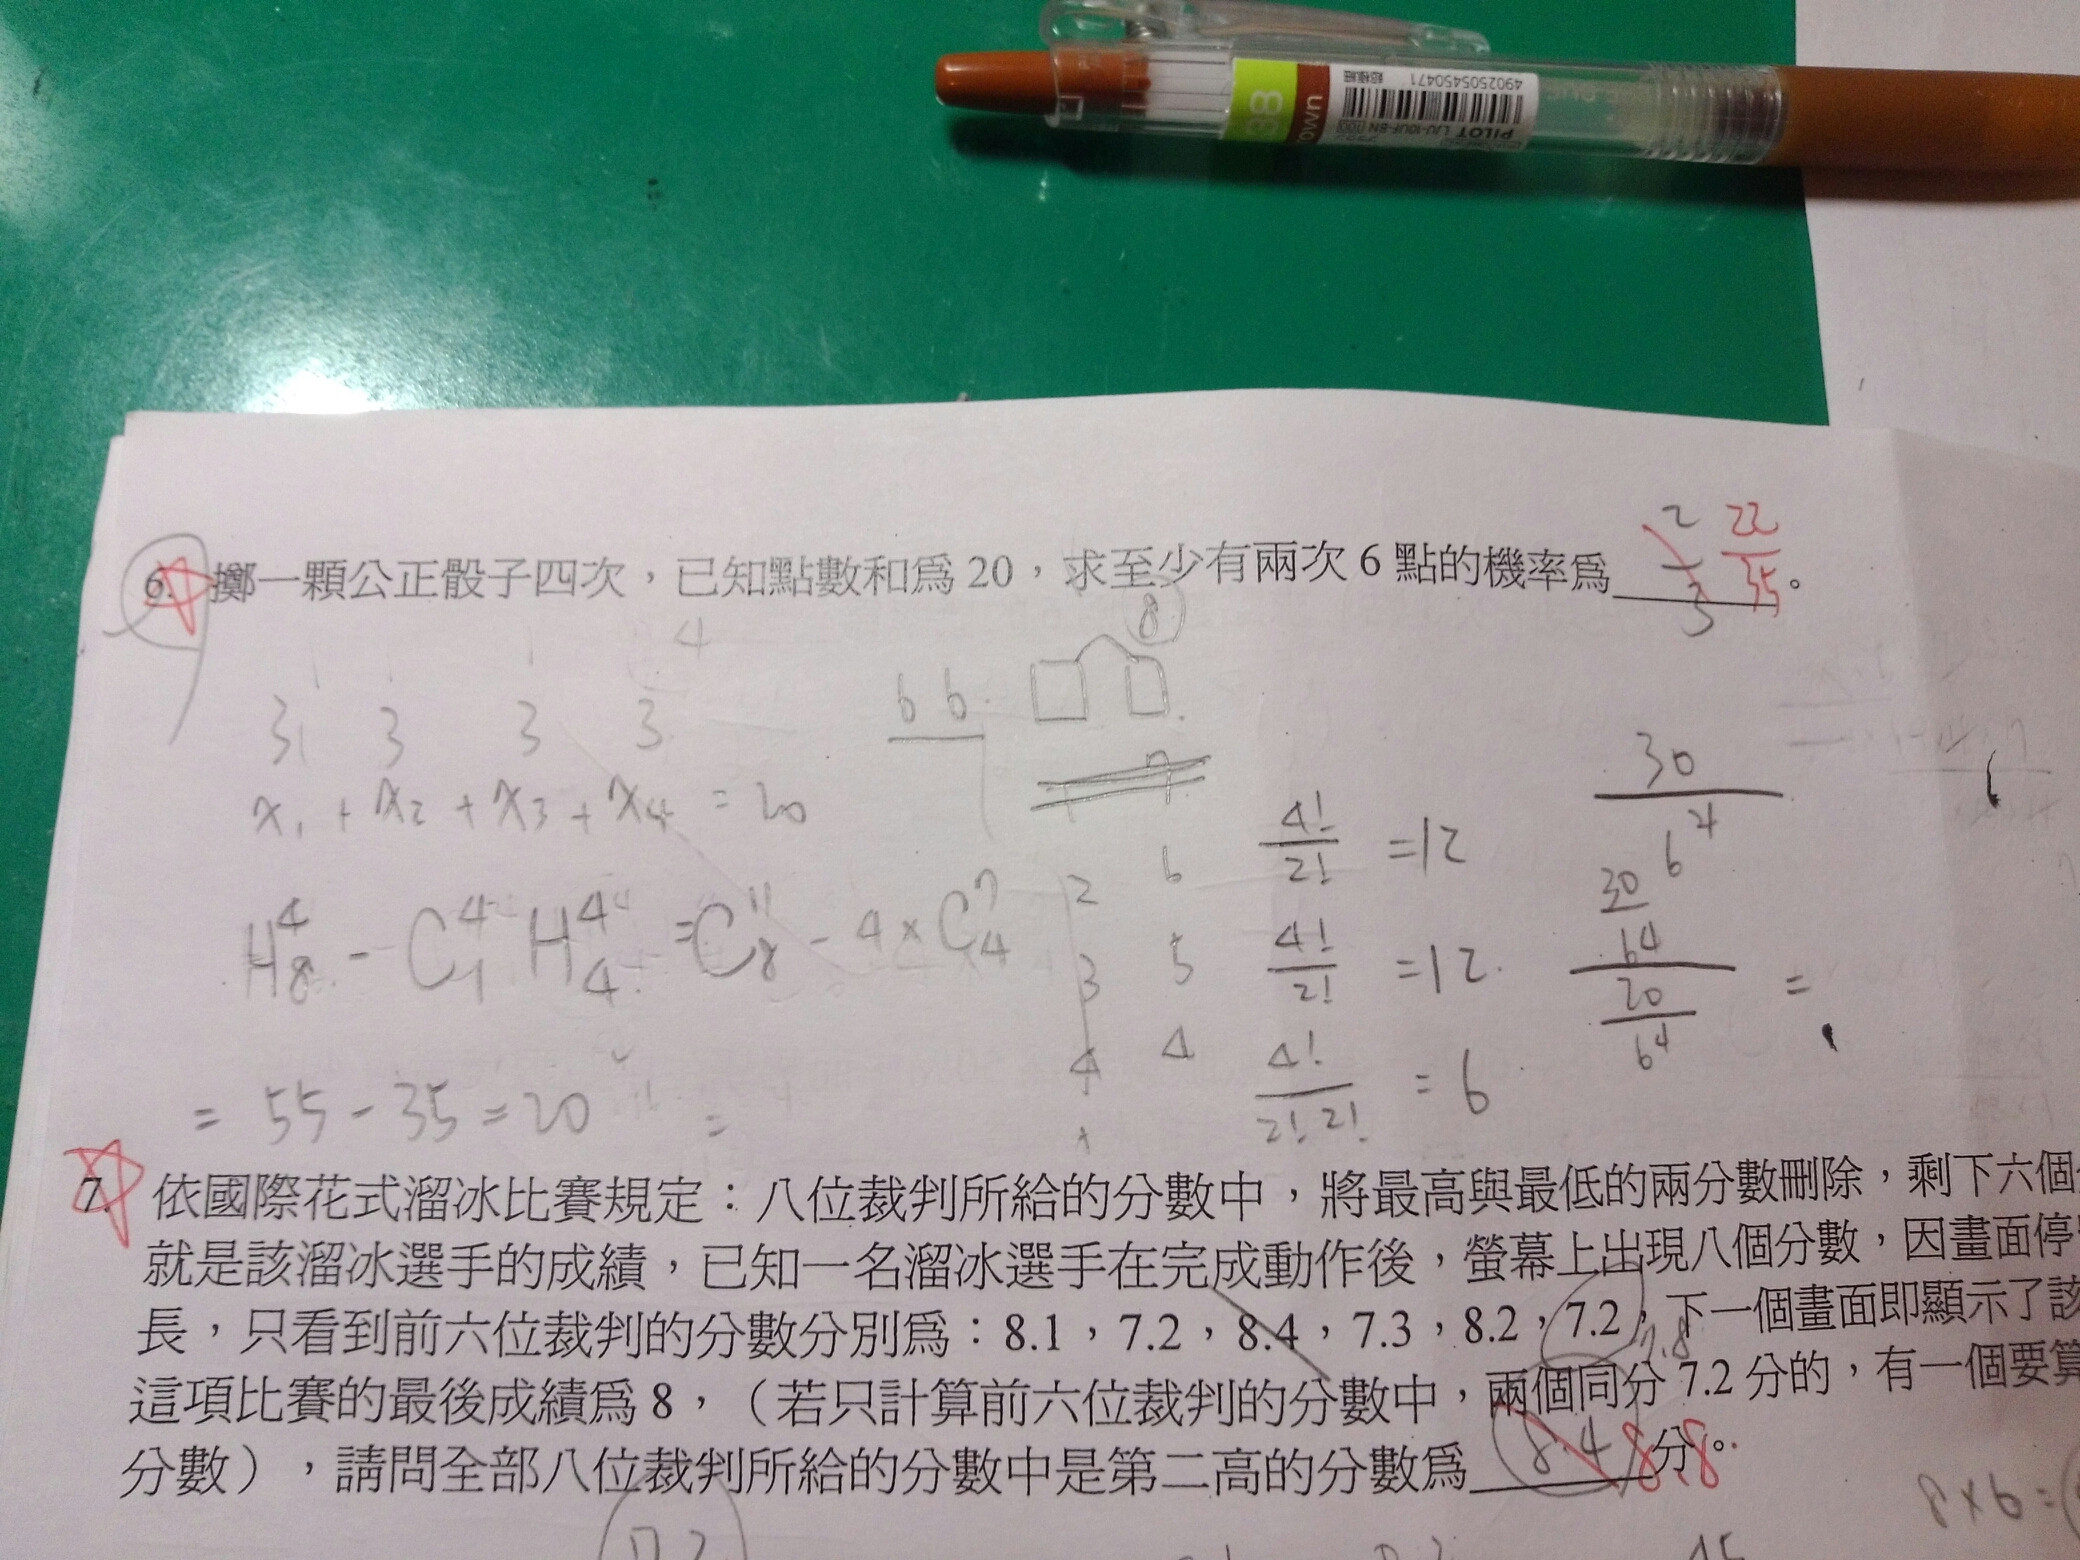 4902505450471
88
own
超極細
PILOT LJU-10UF-BN
100
6. 擲一顆公正骰子四次，已知點數和為 20，求至少有兩次 6 點的機率為 2/3 22/35 。
8
4
3 3 3 3
6 6
x₁ + x₂ + x₃ + x₄ = 20
7
30/6⁴
2 6 4!/2! =12
H⁴₈ - C⁴₁ H⁴₄ = C¹¹₈ - 4 × C⁷₄
3 5 4!/2! =12
30/6⁴ / 20/6⁴ =
4 4 4!/2!2! = 6
= 55 - 35 = 20 =
7. 依國際花式溜冰比賽規定：八位裁判所給的分數中，將最高與最低的兩分數刪除，剩下六個
就是該溜冰選手的成績，已知一名溜冰選手在完成動作後，螢幕上出現八個分數，因畫面停
長，只看到前六位裁判的分數分別為：8.1，7.2，8.4，7.3，8.2，7.2，下一個畫面即顯示了該
7.8
這項比賽的最後成績為 8，（若只計算前六位裁判的分數中，兩個同分 7.2 分的，有一個要算
分數），請問全部八位裁判所給的分數中是第二高的分數為 8.4 8.8 分。
8×6=